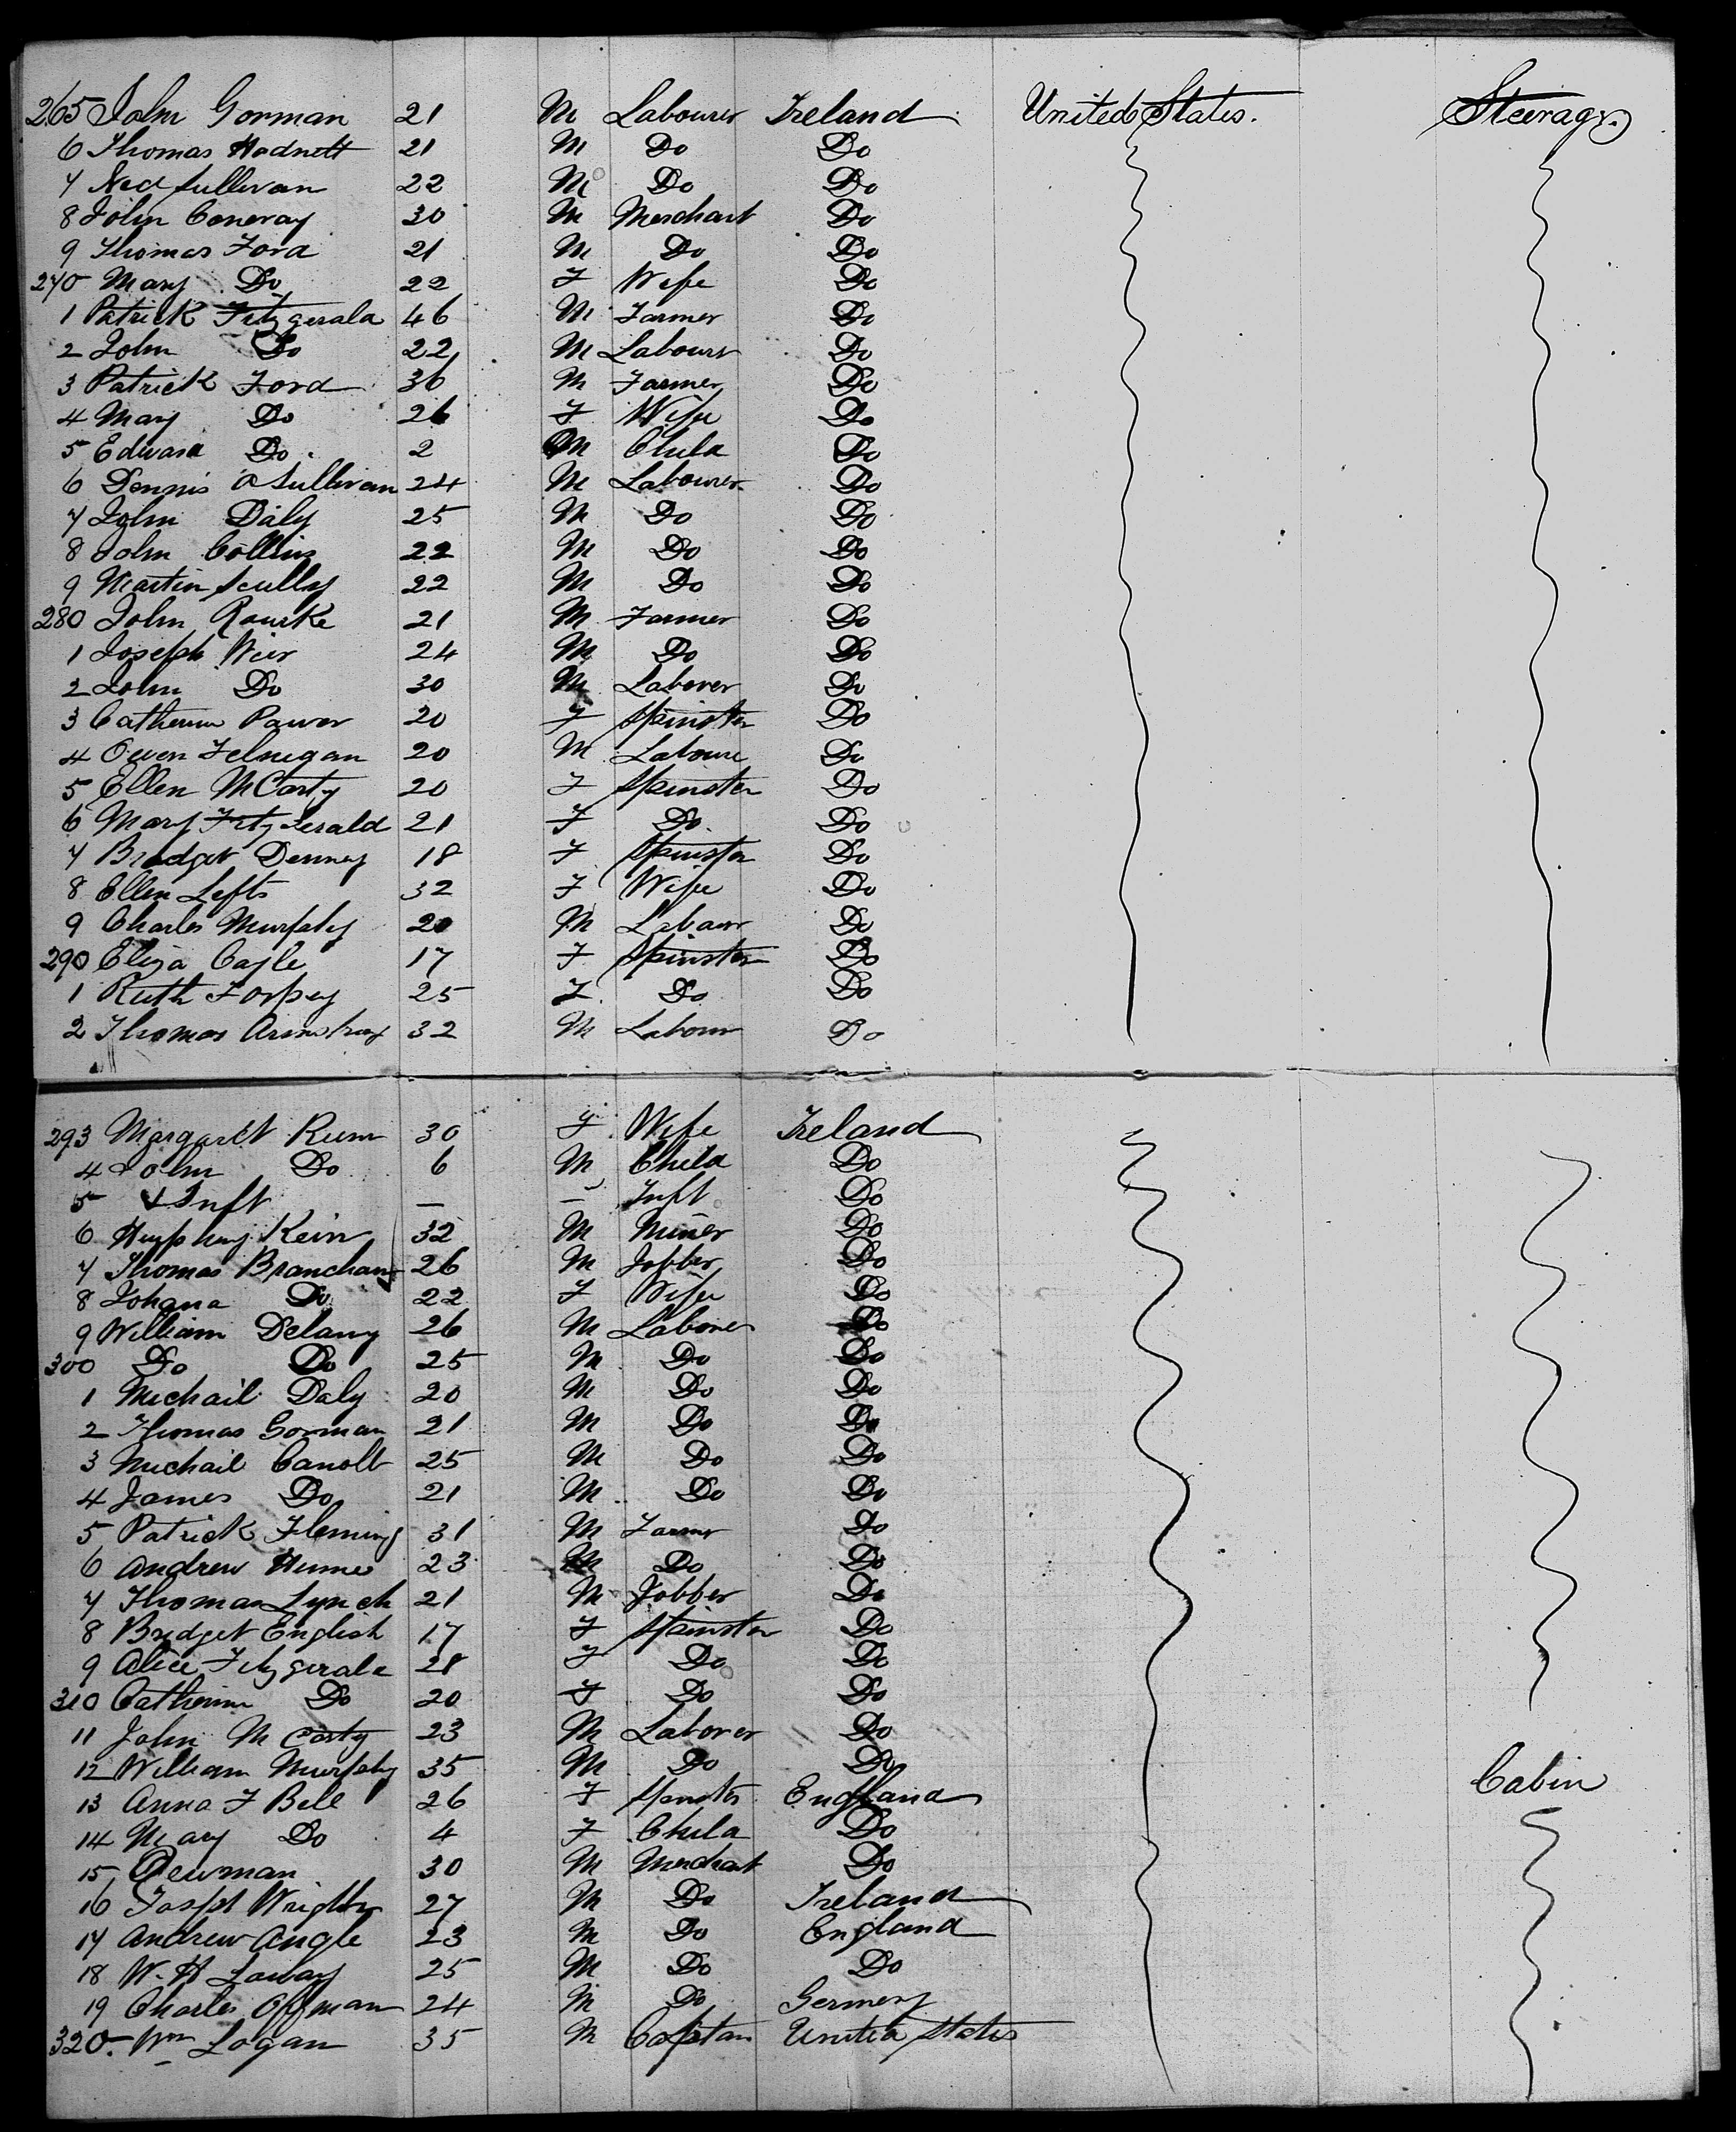 265 John Gorman 21 M Labourer Ireland United States. Steerage.
6 Thomas Hadnett 21 M Do Do
7 Ned Sullivan 22 M Do Do
8 John Coneray 30 M Merchant Do
9 Thomas Ford 21 M Do Do
270 Mary Do 22 F Wife Do
1 Patrick Fitzgerald 46 M Farmer Do
2 John Do 22 M Labourr Do
3 Patrick Ford 36 M Farmer Do
4 Mary Do 26 F Wife Do
5 Edward Do. 2 M Child Do
6 Dennis O Sullivan 24 M Labourer Do
7 John Daly 25 M Do Do
8 John Collins 22 M Do Do
9 Martin Scully 22 M Do Do
280 John Rourke 21 M Farmer Do
1 Joseph Weir 24 M Do Do
2 John Do 30 M Laborer Do
3 Catherine Power 20 F Spinster Do
4 Owen Felnegan 20 M Laboure Do
5 Ellen McCarty 20 F Spinster Do
6 Mary Fitzgerald 21 F Do Do
7 Bridget Denney 18 F Spinster Do
8 Ellen Lefts 32 F Wife Do
9 Charles Murphy 20 M Labour Do
290 Eliza Cagle 17 F Spinster Do
1 Ruth Forpey 25 F Do Do
2 Thomas Armstrong 32 M Labour Do
293 Margaret 30 F Wife Ireland
4 John Do 6 M Child Do
5 & Inft — — Inft Do
6 Humphrey Kein 32 M Miner Do
7 Thomas 26 M Jobber Do
8 Johana Do 22 F Wife Do
9 William Delany 26 M Laborer Do
300 Do Do 25 M Do Do
1 Michail Daly 20 M Do Do
2 Thomas Gorman 21 M Do Do
3 Michail Canolt 25 M Do Do
4 James Do 21 M Do Do
5 Patrick Fleming 31 M Farmr Do
6 Andrew Hume 23 M Do Do
7 Thomas Lynch 21 M Jobber Do
8 Bridget English 17 F Spinster Do
9 Alice Fitzgerald 28 F Do Do
310 Catherine Do 20 F Do Do
11 John McCarty 23 M Laborer Do
12 William Murphy 35 M Do Do
13 Anna F Bell 26 F Spinster England Cabin
14 Mary Do 4 F Child Do
15 Newman 30 M Merchant Do
16 Joseph 27 M Do Ireland
17 Andrew Angle 23 M Do England
18 W. H 25 M Do Do
19 Charles Offman 24 M Do Germeny
320. Wm Logan 35 M Captan United States